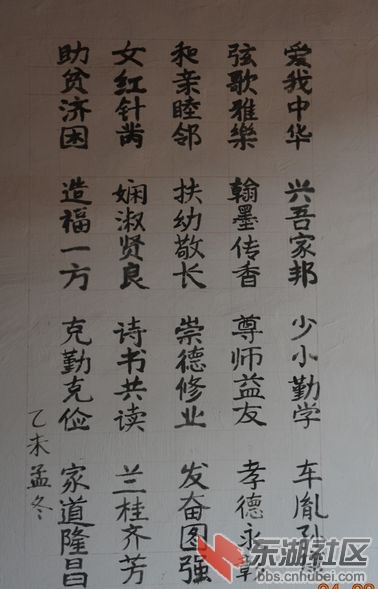 爱我中华 兴吾家邦 少小勤学 车胤
弦歌雅樂 翰墨传香 尊师益友 孝德永彰
和亲睦邻 扶幼敬长 崇德修业 发奋图强
女红针黹 娴淑贤良 诗书共读 兰桂齐芳
助贫济困 造福一方 克勤克俭 家道隆昌
乙未孟冬
东湖社区
bbs.cnhubei.com